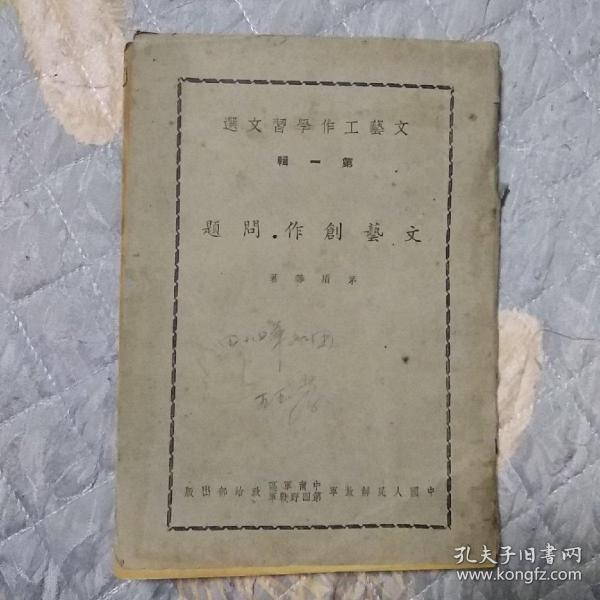 文藝工作學習文選
第一輯
文藝創作問題
茅盾等著
中國人民解放軍中南軍區第四野戰軍政治部出版
孔夫子旧书网
www.kongfz.com